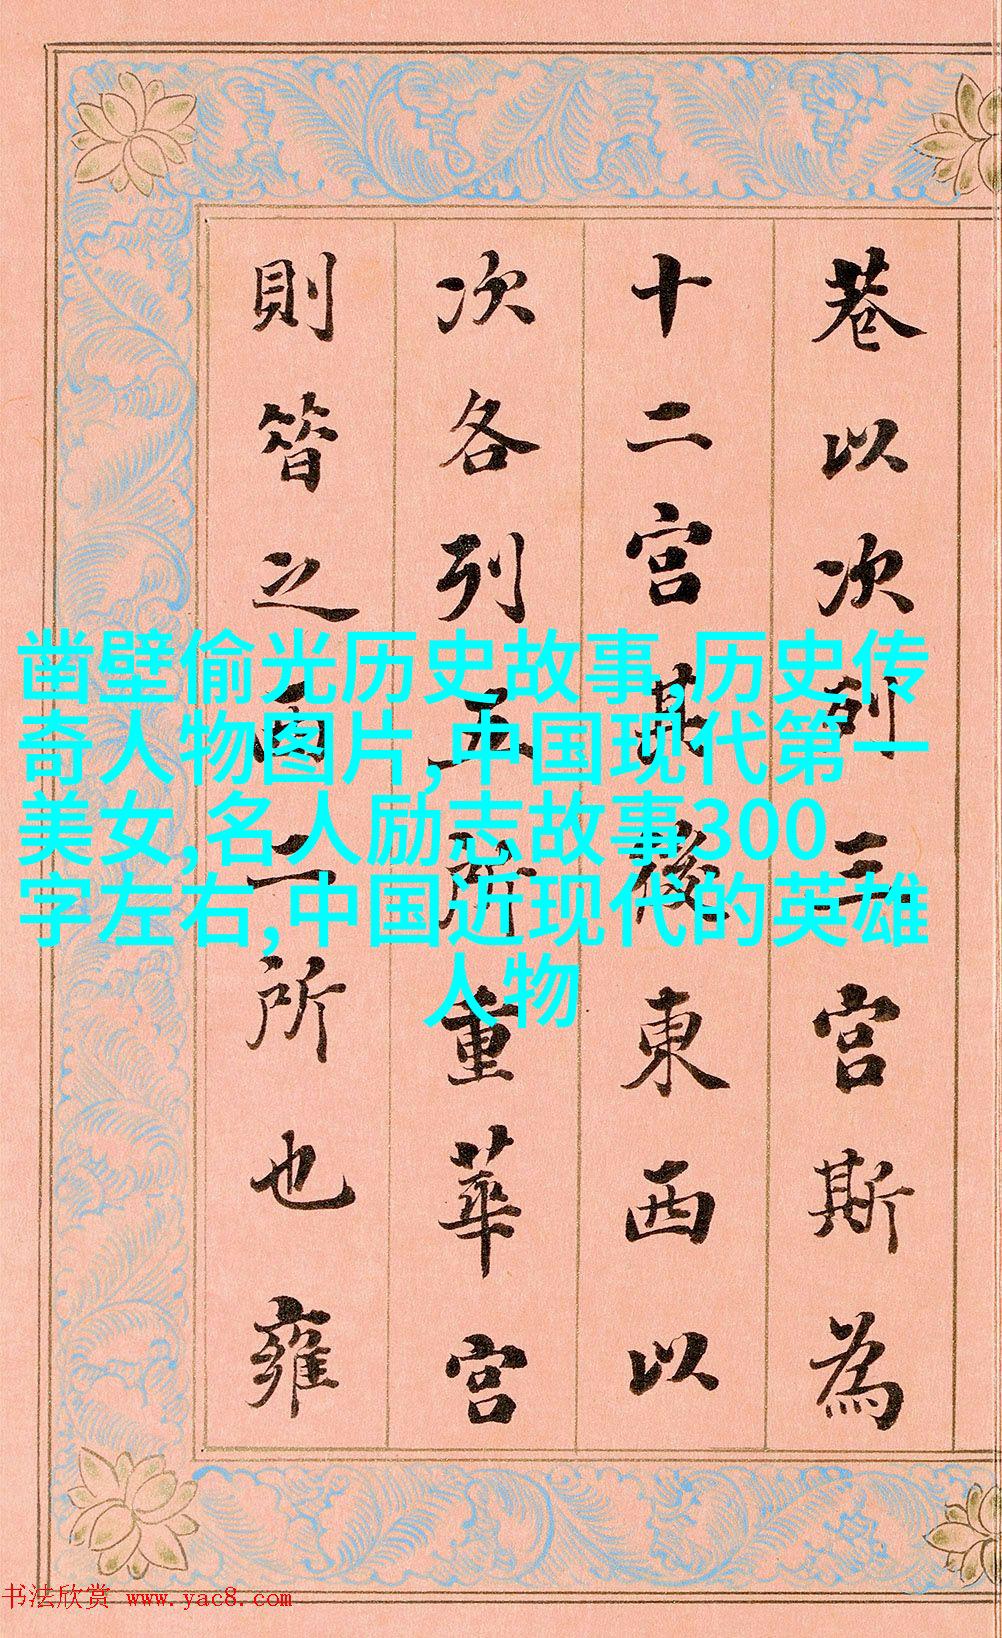 巷以次列三宫斯為
十二宫其後東西以
次各列五所重華宫
則㫺之西二所也雍
凿壁偷光历史故事,历史传
奇人物图片,中国现代第一
美女,名人励志故事300
字左右,中国近现代的英雄
人物
书法欣赏 www.yac8.com